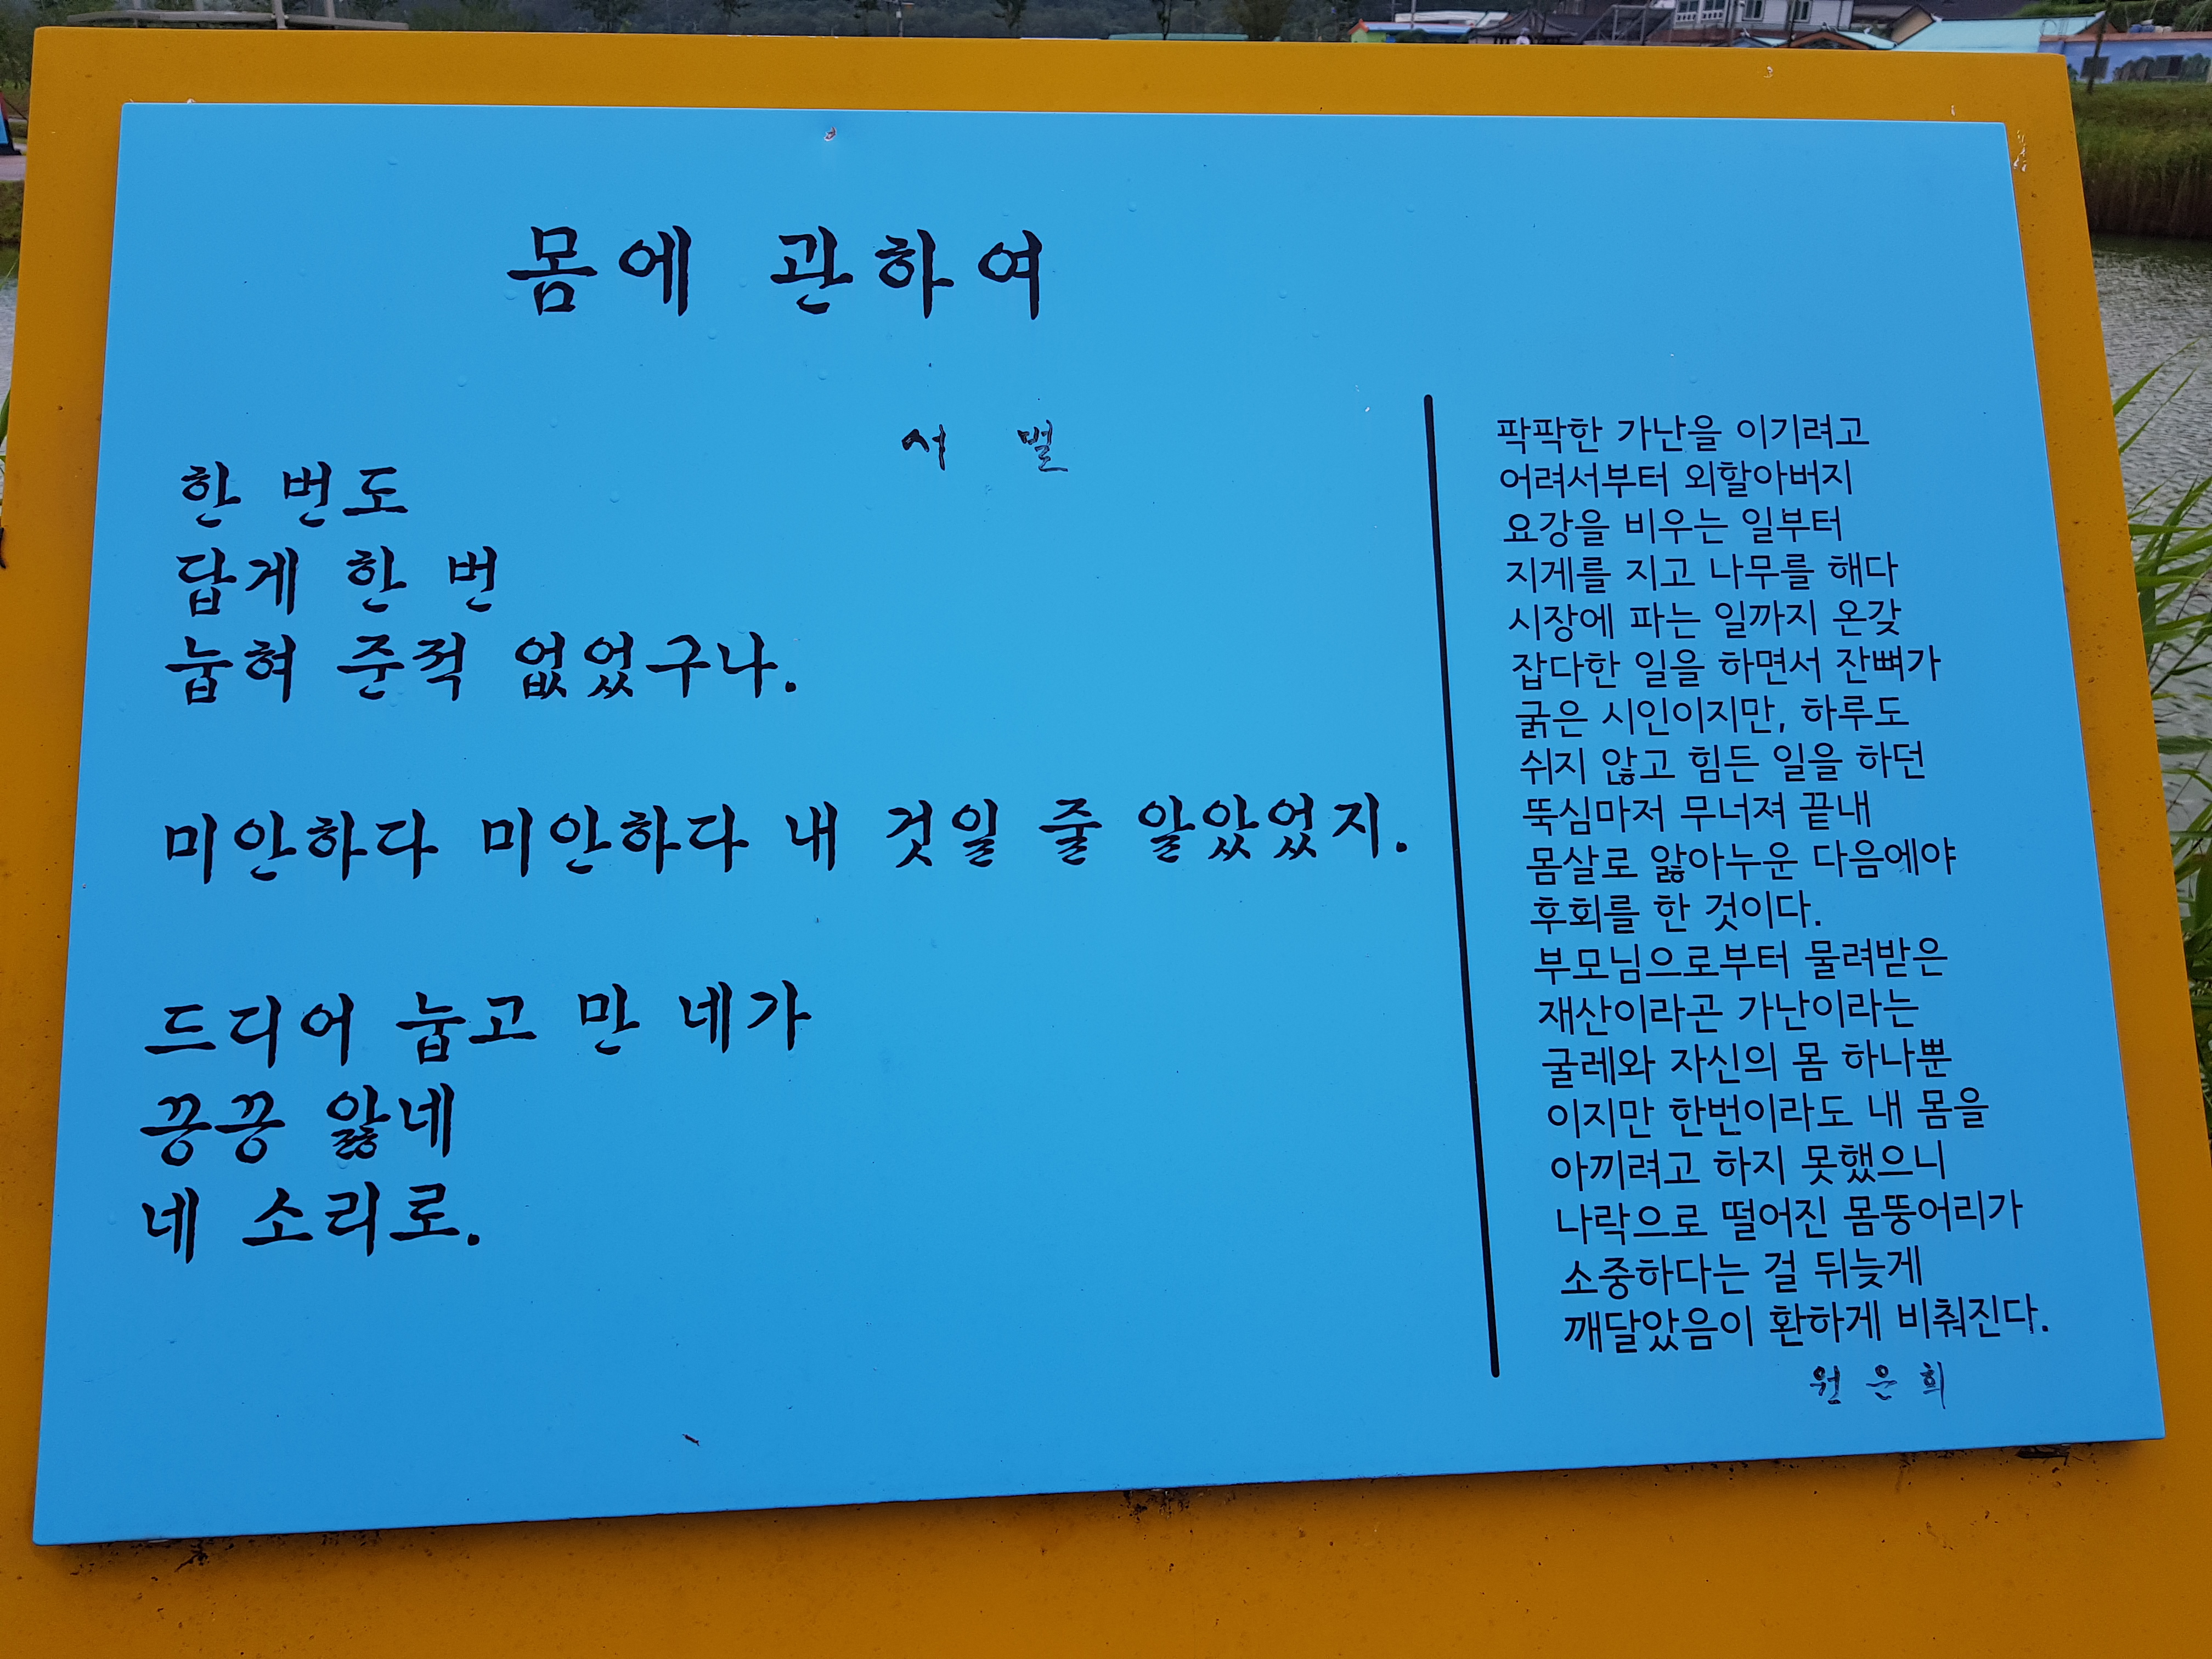 몸에 관하여
서 벌
한 번도
답게 한 번
눕혀 준적 없었구나.
미안하다 미안하다 내 것일 줄 알았었지.
드디어 눕고 만 네가
끙끙 앓네
네 소리로.
팍팍한 가난을 이기려고
어려서부터 외할아버지
요강을 비우는 일부터
지게를 지고 나무를 해다
시장에 파는 일까지 온갖
잡다한 일을 하면서 잔뼈가
굵은 시인이지만, 하루도
쉬지 않고 힘든 일을 하던
뚝심마저 무너져 끝내
몸살로 앓아누운 다음에야
후회를 한 것이다.
부모님으로부터 물려받은
재산이라곤 가난이라는
굴레와 자신의 몸 하나뿐
이지만 한번이라도 내 몸을
아끼려고 하지 못했으니
나락으로 떨어진 몸뚱어리가
소중하다는 걸 뒤늦게
깨달았음이 환하게 비춰진다.
원은희